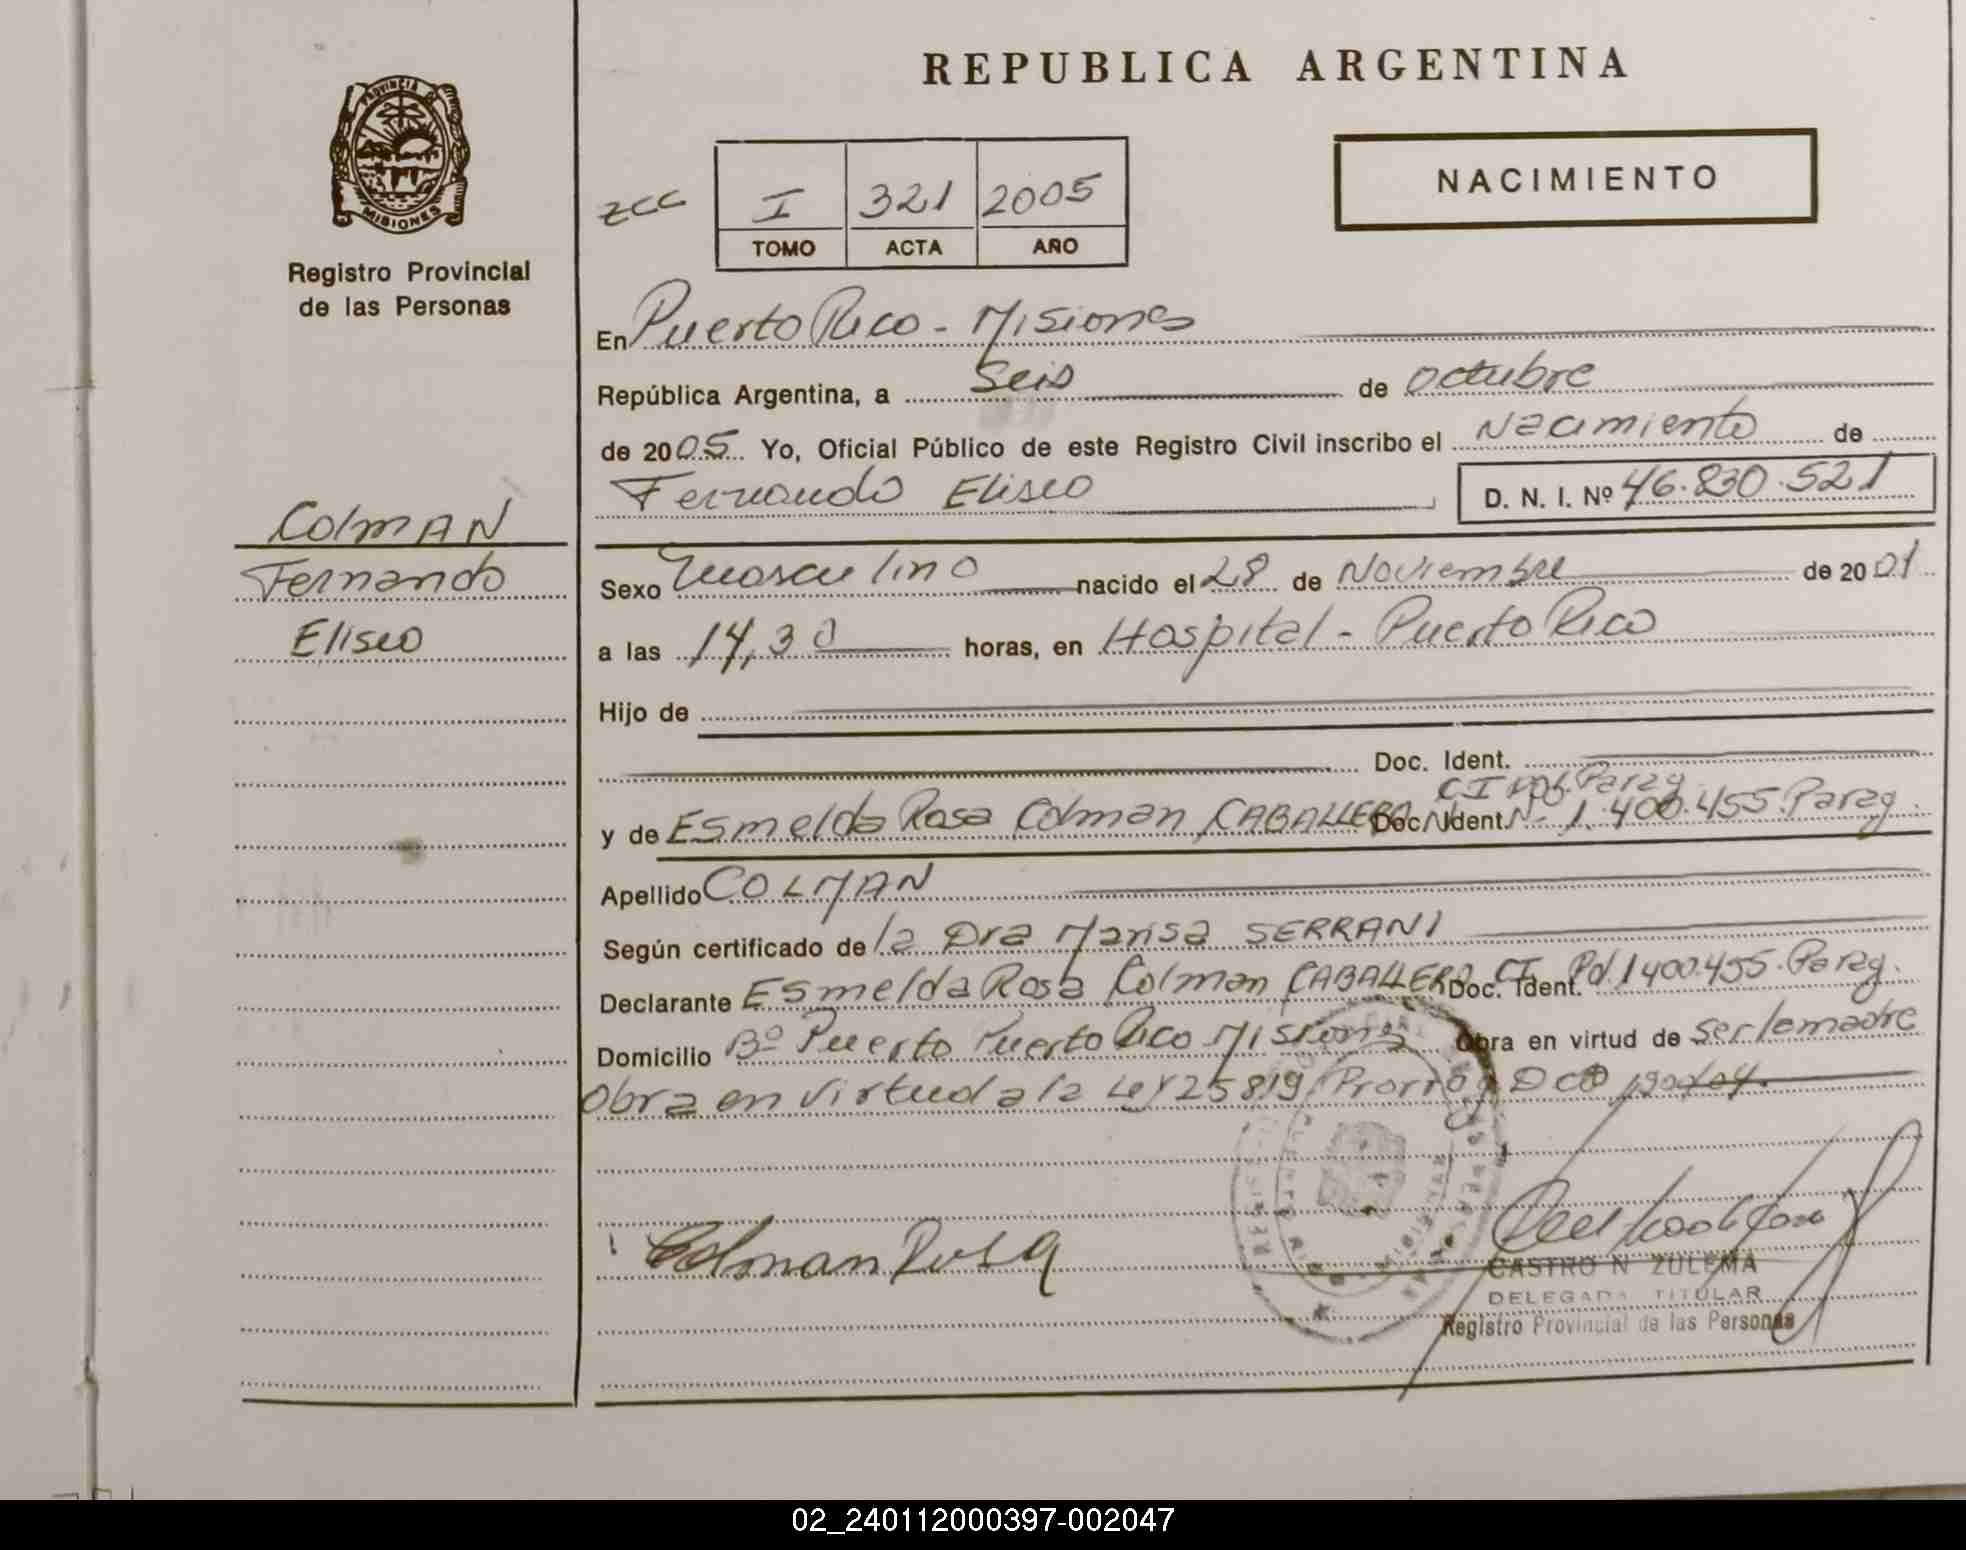 REPUBLICA ARGENTINA
PROVINCIA DE
MISIONES
Registro Provincial
de las Personas
NACIMIENTO
zcc I 321 2005
TOMO ACTA AÑO
En Puerto Rico - Misiones
República Argentina, a Seis de octubre
de 2005 Yo, Oficial Público de este Registro Civil inscribo el Nacimiento de
Fernando Eliseo D. N. I. Nº 46.830.521
Colman
Fernando
Eliseo
Sexo Masculino nacido el 28 de Noviembre de 2001
a las 14,30 horas, en Hospital - Puerto Rico
Hijo de
Doc. Ident.
CI Parag
y de Esmelda Rosa Colman CABALLERO Doc. Ident. Nº 1.400.455. Parag.
Apellido COLMAN
Según certificado de la Dra Marisa SERRANI
Declarante Esmelda Rosa Colman CABALLERO Doc. Ident. CI 1400.455. Parag.
Domicilio Bº Puerto Puerto Rico Misiones Obra en virtud de ser la madre
Obra en virtud a la Ley 25819
Colman Rosa
CASTRO N ZULEMA
DELEGADA TITULAR
Registro Provincial de las Personas
02_240112000397-002047